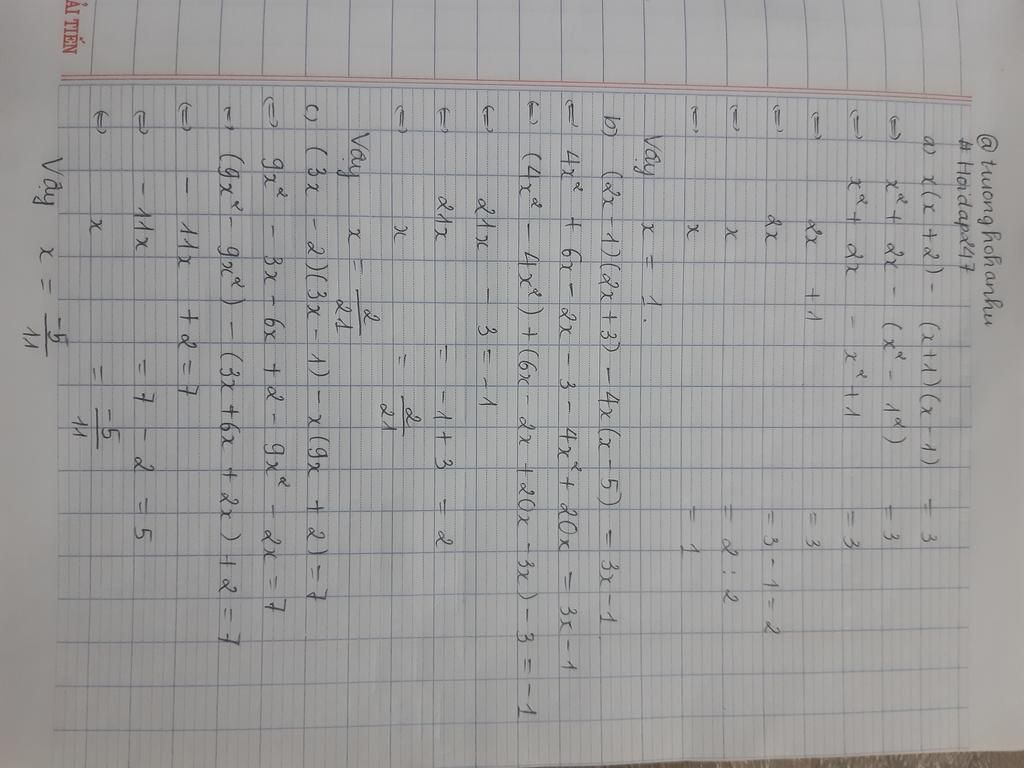 @ thuongholianhu
# Hoidap247
a) x(x + 2) - (x+1)(x-1) = 3
(=) x² + 2x - (x² - 1²) = 3
(=) x² + 2x - x² + 1 = 3
(=) 2x + 1 = 3
(=) 2x = 3 - 1 = 2
(=) x = 2 : 2
(=) x = 1
Vậy x = 1.
b) (2x - 1)(2x + 3) - 4x(x - 5) = 3x - 1
(=) 4x² + 6x - 2x - 3 - 4x² + 20x = 3x - 1
(=) (4x² - 4x²) + (6x - 2x + 20x - 3x) - 3 = -1
(=) 21x - 3 = -1
(=) 21x = -1 + 3 = 2
(=) x = 2/21
Vậy x = 2/21
c) (3x - 2)(3x - 1) - x(9x + 2) = 7
(=) 9x² - 3x - 6x + 2 - 9x² - 2x = 7
(=) (9x² - 9x²) - (3x + 6x + 2x) + 2 = 7
(=) - 11x + 2 = 7
(=) - 11x = 7 - 2 = 5
(=) x = -5/11
Vậy x = -5/11
ẢI TIẾN